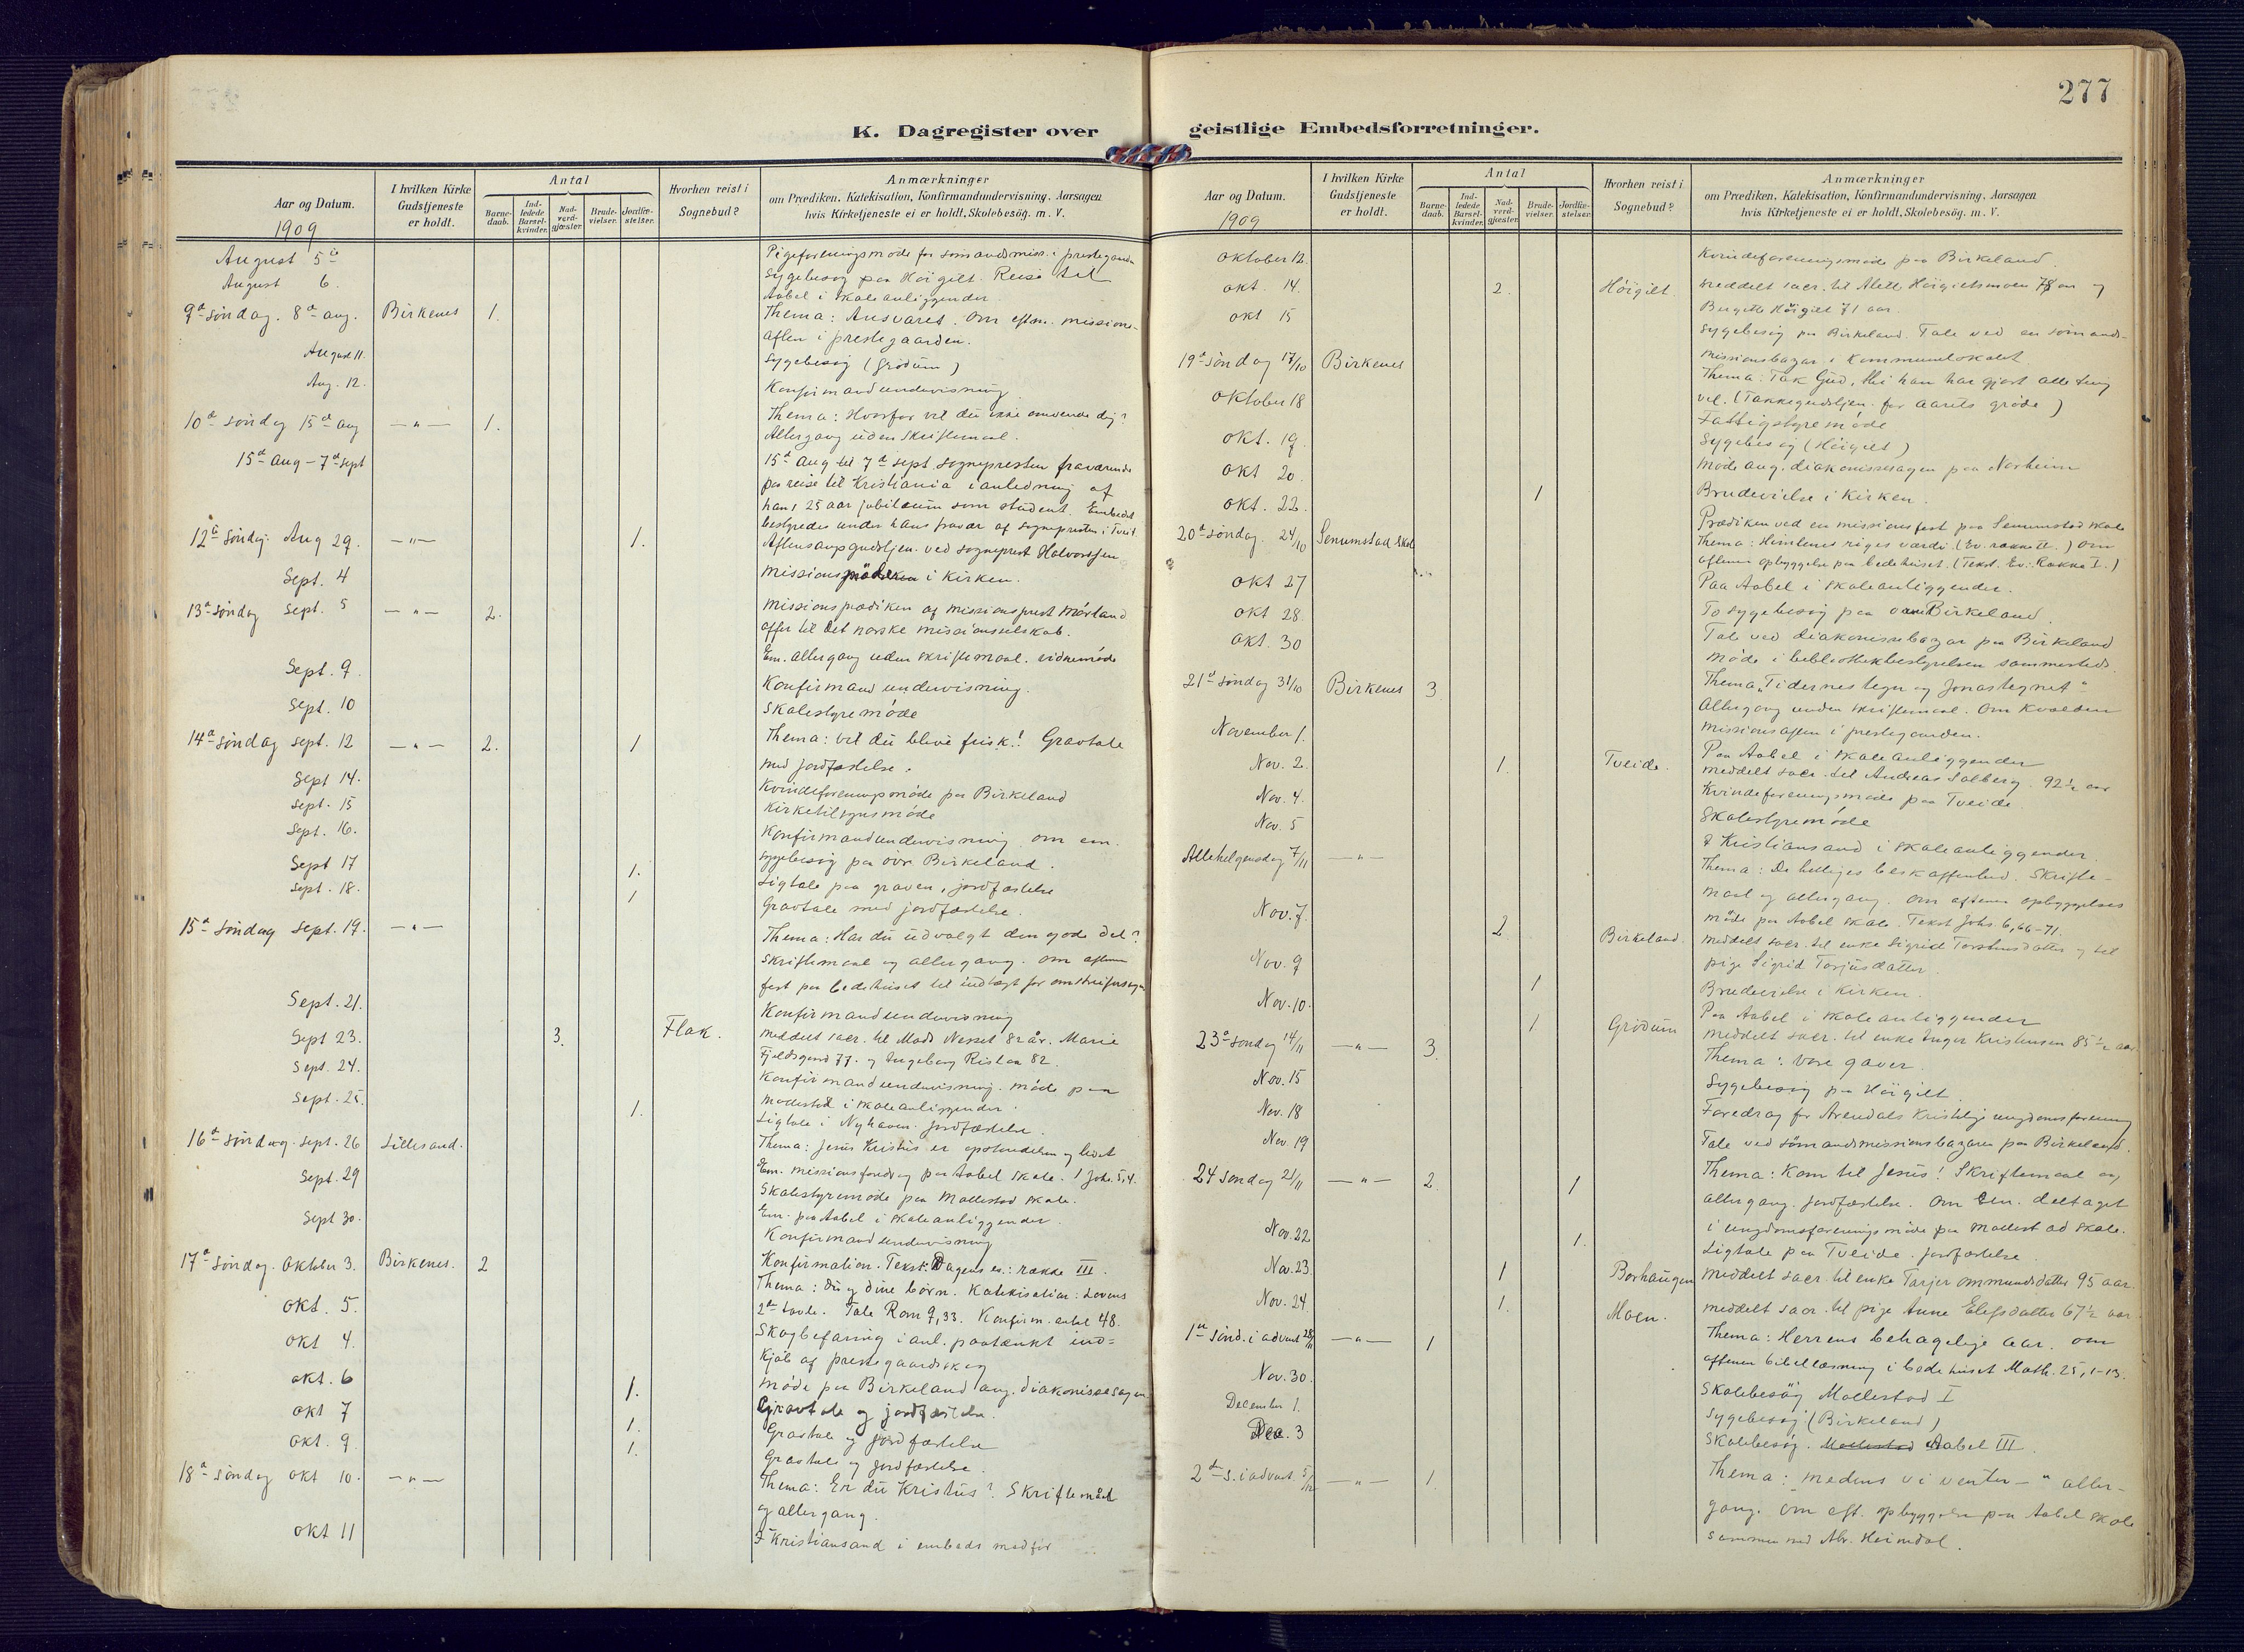 277
K. Dagregister over geistlige Embedsforretninger.
Aar og Datum.
1909
I hvilken Kirke Gudstjeneste er holdt.
Antal
Barnedaab.
Indledede Barselkvinder.
Nadverdgjæster.
Brudevielser.
Jordfæstelser.
Hvorhen reist i Sognebud?
Anmærkninger
om Prædiken, Katekisation, Konfirmandundervisning, Aarsagen
hvis Kirketjeneste ei er holdt, Skolebesøg. m. V.
August 5te Pigeforeningsmøde for sømandsmiss. i prestegaarden
August 6. Sygebesøg paa Høigilt. Reise til
Aabel i skoleanliggender
9de søndag. 8de aug. Birkenes 1. Thema: Ansvaret. Om eftm. missions-
aften i prestegaarden.
August 11. Sygebesøg (Grødum)
Aug. 12. Konfirmandundervisning
10de søndag 15de aug —"— 1. Thema: Hvorfor vil du ikke omvende dig?
Altergang uden skriftemaal.
15de aug – 7de sept 15de aug til 7de sept sognepresten fraværende
paa reise til Kristiania i anledning af
hans 25 aar jubilæum som student. Embedet
bestyredes under hans fravær af sognepresten i Tveit.
12te søndag. Aug 29. —"— 1. Aftensangsgudstjen. ved sogneprest Halvorssen
Sept. 4 Missionsmøde i kirken.
13de søndag Sept. 5 —"— 2. Missionsprædiken af missionsprest Mørland
offer til Det norske missionsselskab.
Em. altergang uden skriftemaal.
Sept. 9. Konfirmandundervisning.
Sept. 10 Skolestyremøde
14de søndag sept. 12 —"— 2. 1 Thema: vil du blive frisk! Gravtale
med jordfæstelse.
Sept 14. Kvindeforeningsmøde paa Birkeland
Sept. 15 Kirketilsynsmøde
Sept. 16. Konfirmandundervisning. om em.
sygebesøg paa øvre Birkeland.
Sept 17 1. Ligtale paa graven, jordfæstelse
Sept. 18. 1 Gravtale med jordfæstelse.
15de søndag Sept. 19. —"— Thema: Har du udvalgt den gode del?
Skriftemaal og altergang. om aftenen
fest paa bedehuset til indtægt for
Sept. 21. Konfirmandundervisning
Sept 23. 3. Flak. meddelt sacr. til Mads Nesset 82 år. Marie
77. og Ingeborg Ristaa 82.
Sept. 24. Konfirmandundervisning. møde paa
Mollestad i skoleanliggender.
Sept. 25. 1. Ligtale i Nyhaven. Jordfæstelse.
16de søndag. sept. 26 Lillesand. Thema: Jesus Kristus er opstandelsen og livet
Em. missionsforedrag paa Aabel skole. 1 Joh. 5,4.
Sept. 29 Skolestyremøde paa Mollestad skole.
Em. paa Aabel i skoleanliggender.
Sept 30. Konfirmandundervisning
17de søndag. Oktober 3. Birkenes. 2 Konfirmation. Tekst: Dagens ev.: række III.
Thema: Du og dine børn. Katekisation: Lovens
2den tavle. Tale Rom 9,33. Konfirm. antal 48.
Okt. 5. Skogbefaring i anl. paatænkt ind=
kjøb af prestegaardsskog
Okt 4. møde paa Birkeland ang. diakonissesagen
Okt. 6 1. Gravtale og jordfæstelse.
Okt 7 1. Gravtale og jordfæstelse
Okt. 9 1. Gravtale og jordfæstelse.
18de søndag Okt 10. —"— Thema: Er du Kristus? Skriftemål
og altergang.
Okt 11 I Kristiansand i embeds medfør
Aar og Datum.
1909
I hvilken Kirke Gudstjeneste er holdt.
Antal
Barnedaab.
Indledede Barselkvinder.
Nadverdgjæster.
Brudevielser.
Jordfæstelser.
Hvorhen reist i Sognebud?
Anmærkninger
om Prædiken, Katekisation, Konfirmandundervisning, Aarsagen
hvis Kirketjeneste ei er holdt, Skolebesøg. m. V.
Oktober 12. Kvindeforeningsmøde paa Birkeland.
Okt. 14. 2. Høigilt. meddelt sacr. til Alette Høigiltsmoen 78 aar og
Bergitte Høigilt 71 aar.
Okt 15 Sygebesøg paa Birkeland. Tale ved en sømands-
missionsbazar i Kommunelokalet
19de søndag 17/10 Birkenes Thema: Tak Gud, thi han har gjort alle ting
vel. (Takkegudstjen. for aarets grøde)
Oktober 18 Fattigstyremøde
Okt. 19. Sygebesøg (Høigilt)
Okt 20. Møde ang. diakonissesagen paa Norheim
Okt. 22. 1 Brudevielse i kirken.
20de søndag. 24/10 Senumstad skole Prædiken ved en missionsfest paa Senumstad skole
Thema: Himlenes riges værdi (Ev. række II.) Om
aftenen opbyggelse paa bedehuset. (Tekst. Ev. Række I.)
Okt 27 Paa Aabel i skoleanliggender.
Okt 28. To sygebesøg paa Birkeland.
Okt. 30 Tale ved diakonissebazar paa Birkeland
Møde i bibliothekbestyrelsen sammesteds.
21de søndag 31/10 Birkenes 3 Thema „Tidernes tegn og Jonastegnet"
Altergang uden skriftemaal. Om kvælden
missionsaften i prestegaarden.
November 1. Paa Aabel i skoleanliggender
Nov. 2. 1. Tveide. meddelt sacr. til Andreas Solberg. 92½ aar
Nov. 4. Kvindeforeningsmøde paa Tveide.
Nov. 5 Skolestyremøde
I Kristiansand i skoleanliggender.
Allehelgensdag 7/11 —"— Thema: De helliges beskaffenhed. Skrifte-
maal og altergang. Om aftenen opbyggelses
møde paa Aabel skole. Tekst Johs. 6,66-71.
Nov. 7. 2 Birkeland. meddelt sacr. til enke Sigrid Torstensdatter og til
pige Sigrid Torjusdatter.
Nov. 9 1 Brudevielse i kirken.
Nov. 10. Paa Aabel i skoleanliggender
1 Grødum meddelt sacr. til enke Inger Kristensen 85½ aar
23de søndag 14/11 —"— 3. Thema: Vore gaver.
Nov. 15 Sygebesøg paa Høigilt.
Nov. 18 Foredrag for Arendals Kristelige ungdomsforening
Nov 19 Tale ved sømandsmissionsbazaren paa Birkeland.
24 søndag 21/11 —"— 2. 1 Thema: Kom til Jesus! Skriftemaal og
altergang. Jordfæstelse. Om Em. deltaget
i ungdomsforeningsmøde paa Mollestad skole.
Nov. 22 1. Ligtale paa Tveide. jordfæstelse.
Nov. 23. 1 Borhaugen meddelt sacr. til enke Tarjer Ommundsdatter 95 aar.
Nov. 24. 1. Moen. meddelt sacr. til pige Anne Elefsdatter 67½ aar.
1ste sønd. i advent 28/11 —"— 1 Thema: Herrens behagelige aar. om
aftenen bibellæsning i bedehuset Math. 25,1-13.
Nov. 30. Skolebesøg Mollestad I
December 1. Sygebesøg (Birkeland)
Dec. 3 Skolebesøg. Mollestad Aabel III.
2den s. i advent. 5/12 —"— 1. Thema: „medens vi venter—" alter-
gang. Om eft. opbyggelse paa Aabel skole
sammen med Abr. Heimdal.